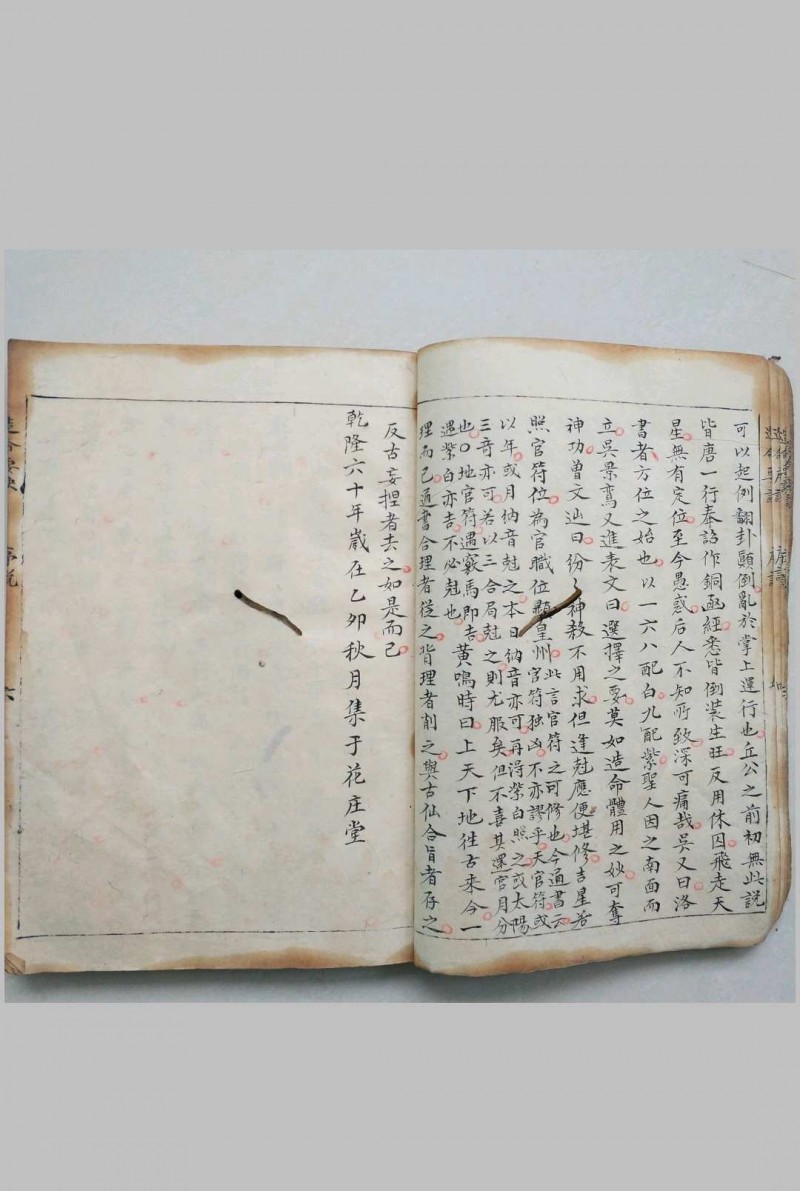 可以起例翻卦顚倒亂於掌上運行也丘公之前初無此説
皆唐一行奉詔作銅函經悉皆倒裝生旺反用休囚飛走天
星無有定位至今愚惑后人不知所致深可痛哉吳又曰洛
書者方位之始也以一六八配白九配紫聖人因之南面而
立吳景鸞又進表文曰選擇之要莫如造命體用之妙可奪
神功曾文辿曰紛〻神殺不用求但逢尅應便堪修吉星若
照官符位為官職位顯皇州此言官符之可修也今通書云
官符独凶不亦謬乎天官符或
以年或月納音尅之本日納音亦可再得紫白照之或太陽
三奇亦可若以三合局尅之則尤服矣但不喜其運宮月分
也〇地官符遇竅馬即吉黄鳴時曰上天下地往古來今一
遇紫白亦吉不必尅也
理而已通書合理者從之背理者削之與古仙合旨者存之
反古妄捏者去之如是而已
乾隆六十年歲在乙卯秋月集于花庄堂